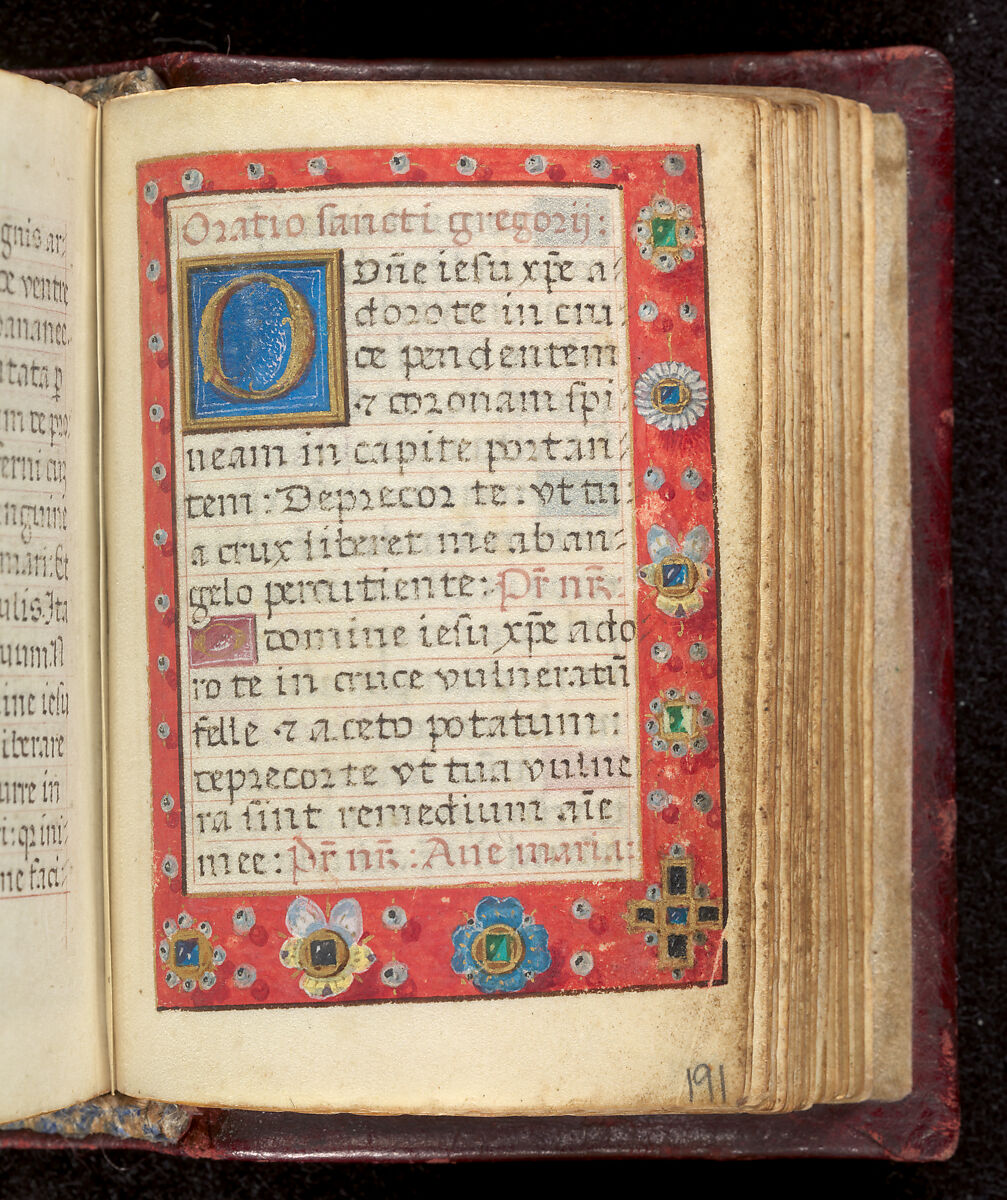 gnis ar-
de ventre
tata p̄
iliberare
urre in
me faci-
Oratio sancti gregorij:
O Dn̄e iesu xp̄e a-
doro te in cru-
ce pendentem
⁊ coronam spi-
neam in capite portan-
tem: Deprecor te: vt tu-
a crux liberet me ab an-
gelo percutiente: Pr̄ nr̄:
O domine iesu xp̄e ado
ro te in cruce vulneratū
felle ⁊ aceto potatum:
deprecor te vt tua vulne
ra sint remedium aīe
mee: Pr̄ nr̄: Aue maria:
191